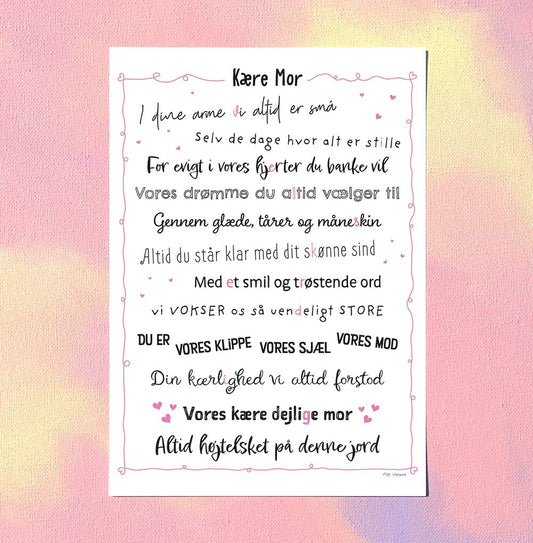 Kære Mor
I dine arme vi altid er små
Selv de dage hvor alt er stille
For evigt i vores hjerter du banke vil
Vores drømme du altid vælger til
Gennem glæde, tårer og måneskin
Altid du står klar med dit skønne sind
Med et smil og trøstende ord
vi VOKSER os så uendeligt STORE
DU ER VORES KLIPPE VORES SJÆL VORES MOD
Din kærlighed vi altid forstod
Vores kære dejlige mor
Altid højtelsket på denne jord